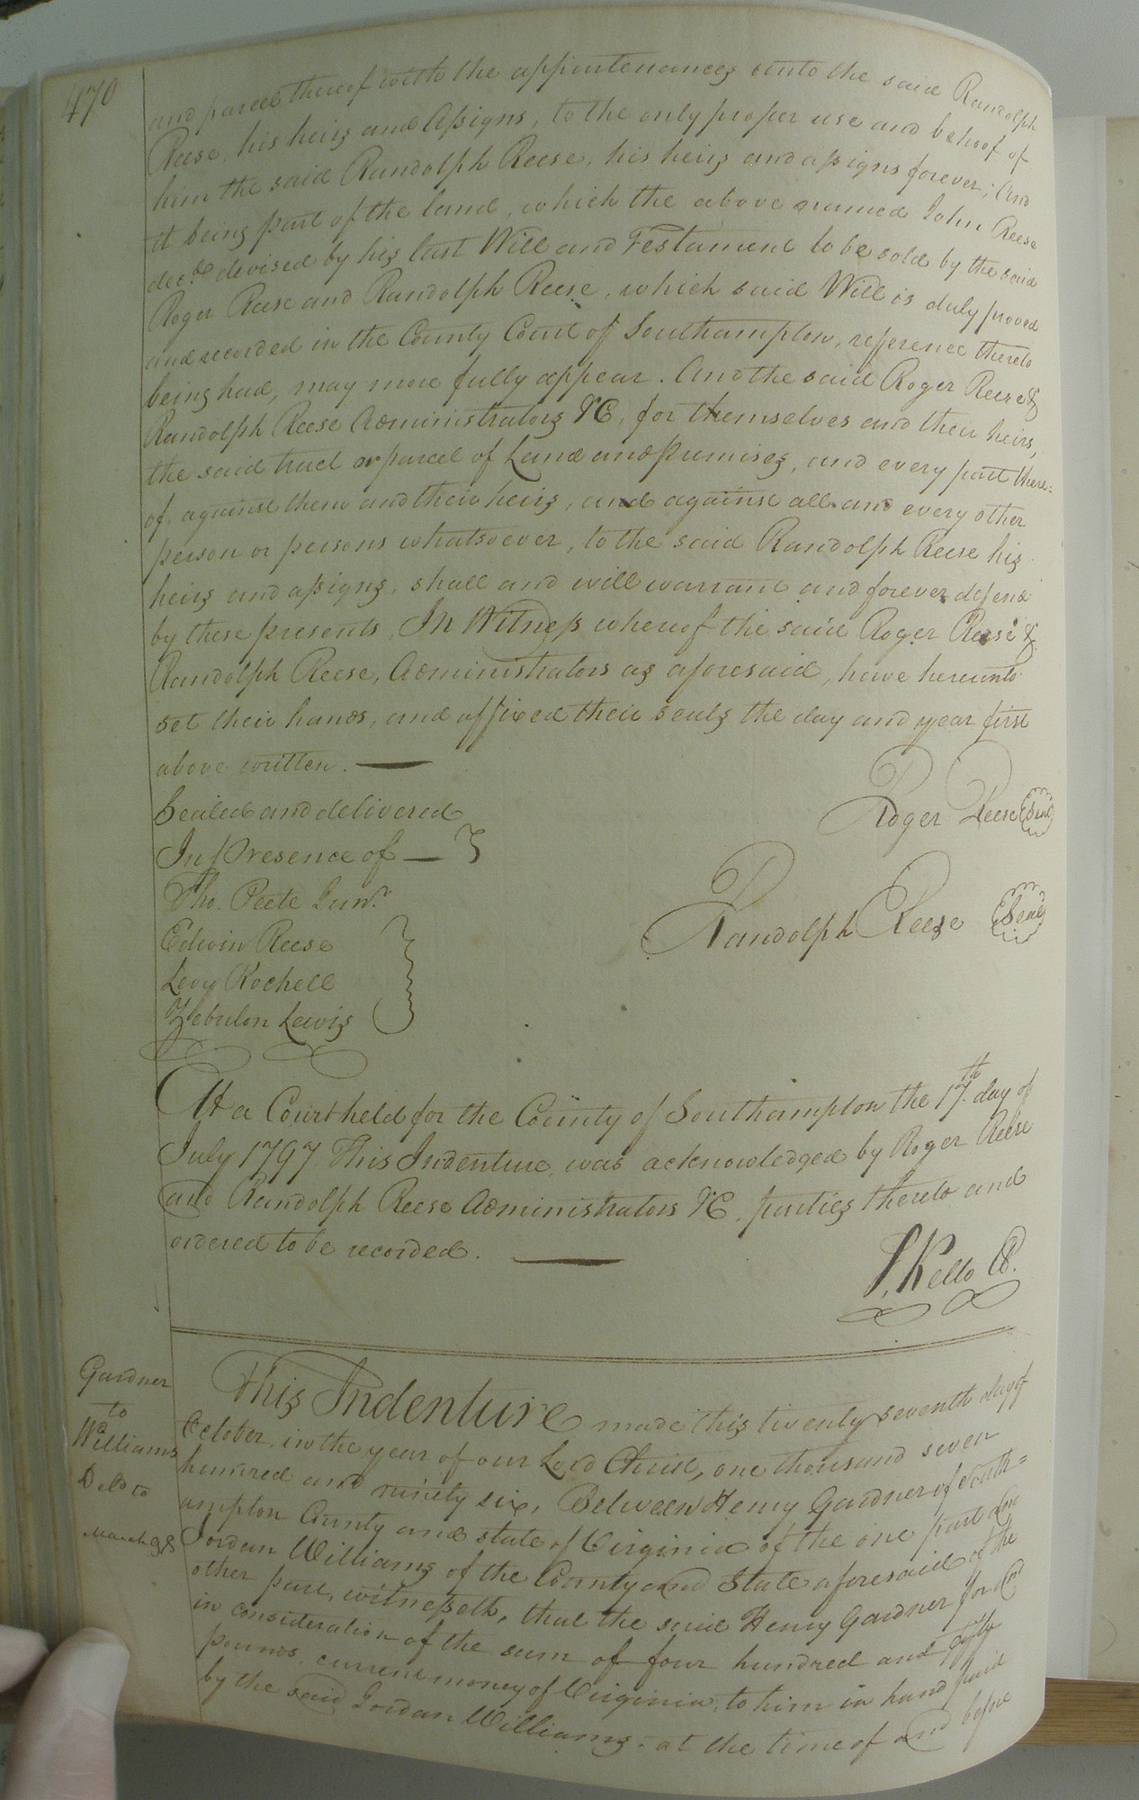 470
and parcel thereof with the appurtenances unto the said Randolph
Reese, his heirs and Assigns, to the only proper use and behoof of
him the said Randolph Reese, his heirs and assigns forever; And
it being part of the land, which the above named John Reese
decd. devised by his last Will and Testament to be sold by the said
Roger Reese and Randolph Reese, which said Will is duly proved
and recorded in the County Court of Southampton, reference thereto
being had, may more fully appear. And the said Roger Reese &
Randolph Reese Administrators &C, for themselves and their heirs,
the said tract or parcel of Land and premises, and every part there=
of, against them and their heirs, and against all and every other
person or persons whatsoever, to the said Randolph Reese his
heirs and assigns, shall and will warrant and forever defend
by these presents. In Witness whereof the said Roger Reese &
Randolph Reese, Administrators as aforesaid, have hereunto
set their hands, and affixed their seals the day and year first
above written. —
Sealed and delivered
In Presence of —
Tho. Peete Junr.
Edwin Reese
Levy Rochell
Zebulon Lewis
Roger Reese Seal
Randolph Reese Seal
At a Court held for the County of Southampton the 17th day of
July 1797 This Indenture was acknowledged by Roger Reese
and Randolph Reese Administrators &C. parties thereto and
ordered to be recorded. —
S. Kello C.
Gardner
to
Williams
Deld to
March 98
This Indenture made this twenty seventh day of
October, in the year of our Lord Christ, one thousand seven
hundred and ninety six, Between Henry Gardner of South=
ampton County and state of Virginia of the one part and
Jordan Williams of the County and State aforesaid of the
other part, witnesseth, that the said Henry Gardner for and
in consideration of the sum of four hundred and fifty
pounds current money of Virginia, to him in hand paid
by the said Jordan Williams, at the time of and before